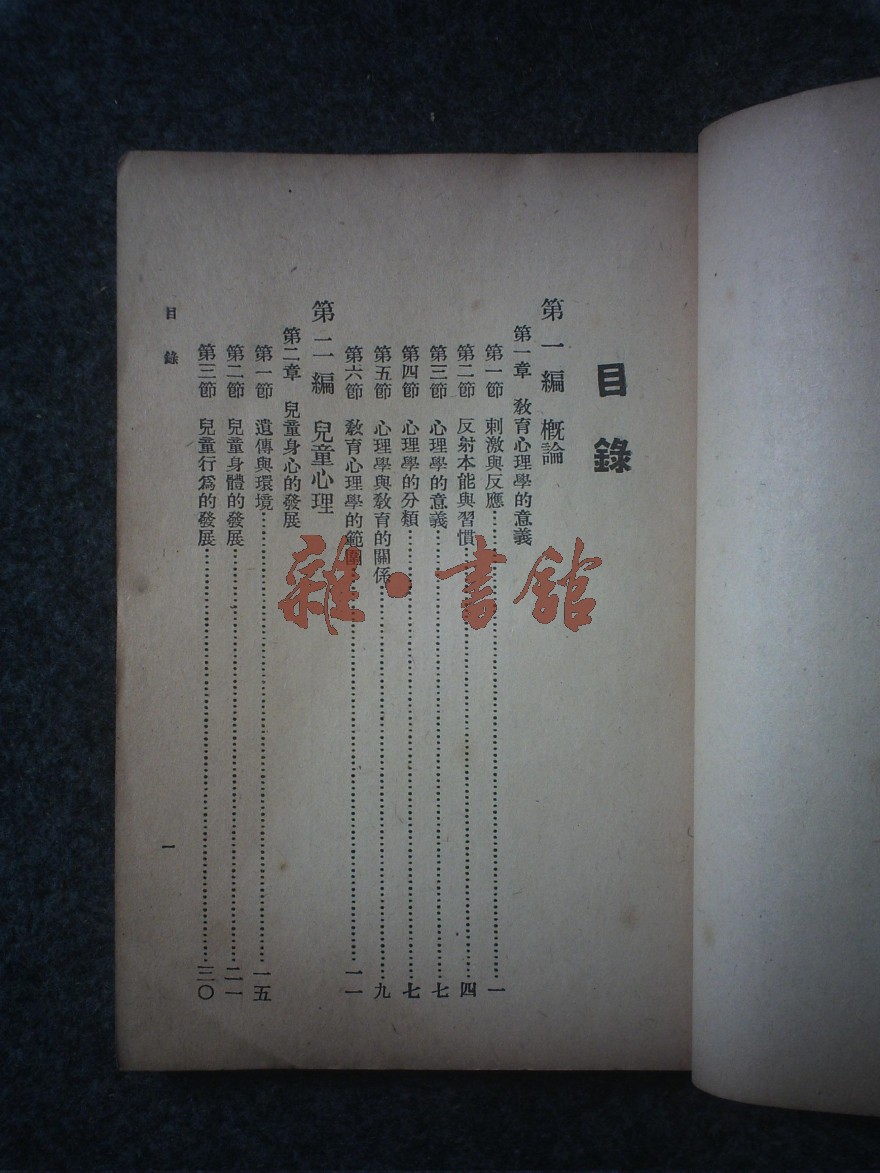 目錄
第一編 概論
第一章 教育心理學的意義
第一節 刺激與反應……一
第二節 反射本能與習慣……四
第三節 心理學的意義……七
第四節 心理學的分類……七
第五節 心理學與教育的關係……九
第六節 教育心理學的範圍……一一
第二編 兒童心理
第二章 兒童身心的發展
第一節 遺傳與環境……一五
第二節 兒童身體的發展……二一
第三節 兒童行爲的發展……三〇
目錄
一
雜·書館